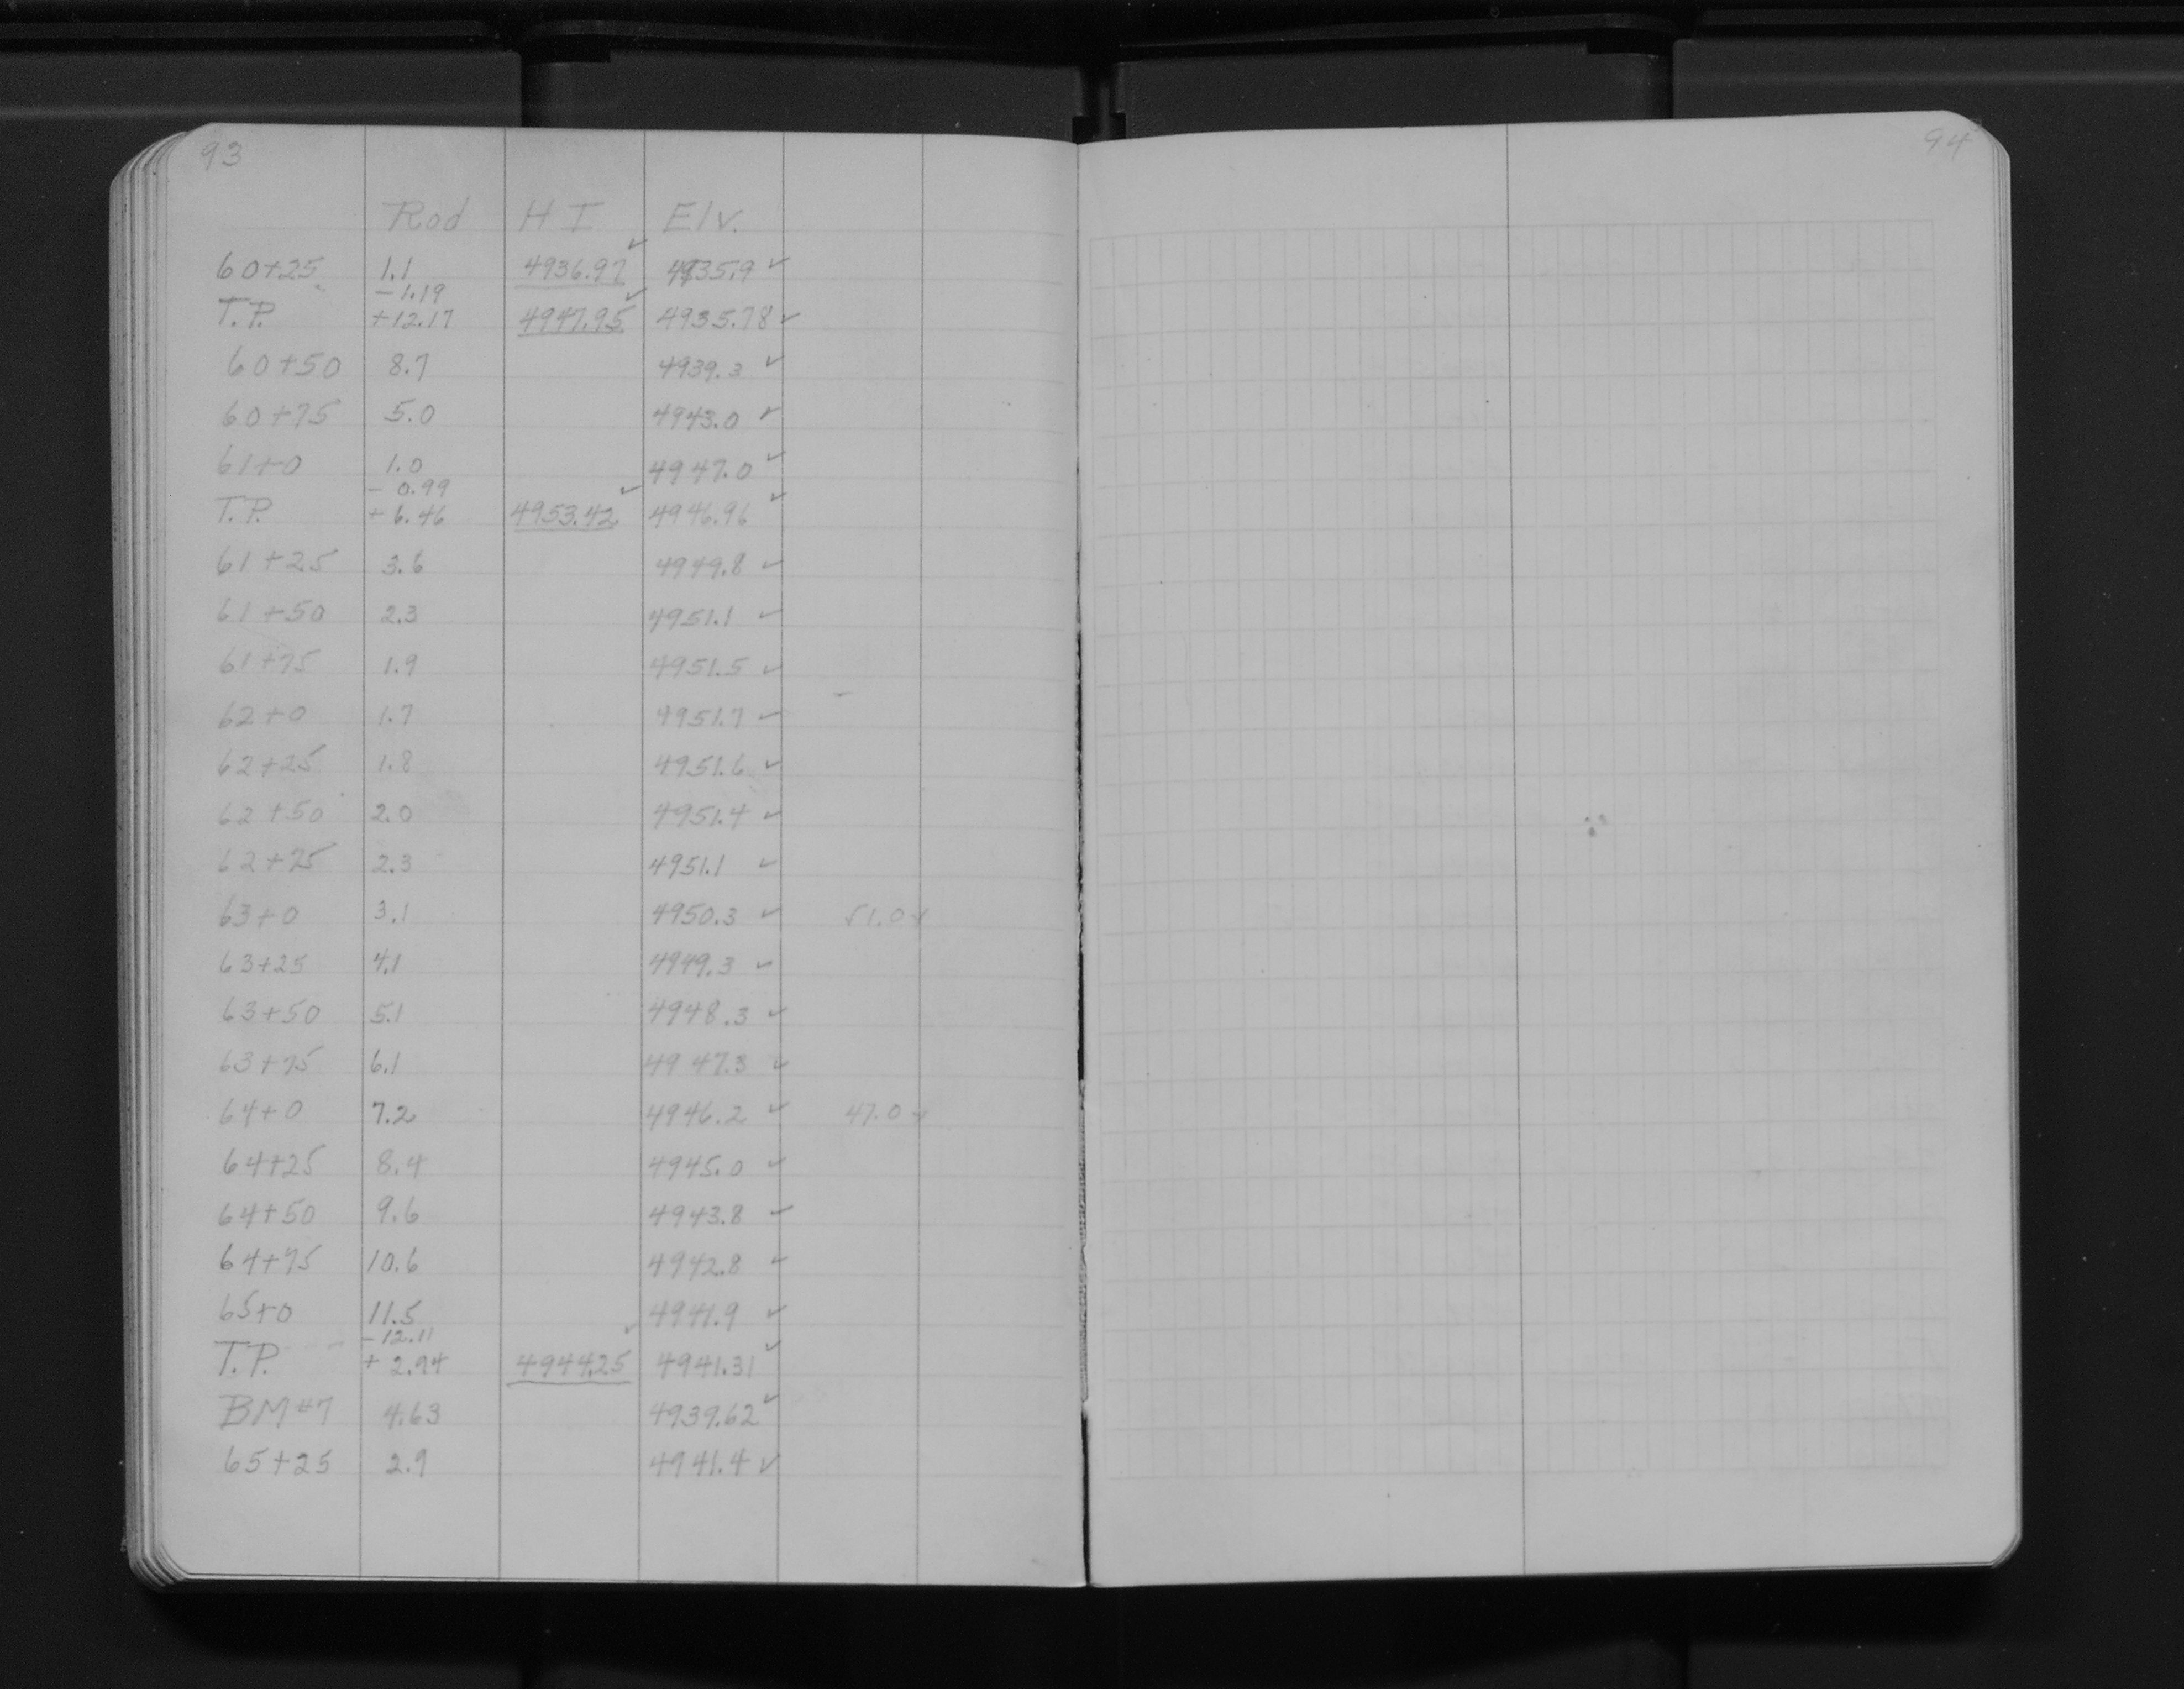 93
94
Rod H I Elv.
60+25 1.1 4936.97 ✓ 4935.9 ✓
- 1.19
T.P. +12.17 4947.95 ✓ 4935.78 ✓
60+50 8.7 4939.3 ✓
60+75 5.0 4943.0 ✓
61+0 1.0 4947.0 ✓
- 0.99
T.P. + 6.46 4953.42 ✓ 4946.96 ✓
61+25 3.6 4949.8 ✓
61+50 2.3 4951.1 ✓
61+75 1.9 4951.5 ✓
62+0 1.7 4951.7 ✓
62+25 1.8 4951.6 ✓
62+50 2.0 4951.4 ✓
62+75 2.3 4951.1 ✓
63+0 3.1 4950.3 ✓ 51.0 ✓
63+25 4.1 4949.3 ✓
63+50 5.1 4948.3 ✓
63+75 6.1 4947.3 ✓
64+0 7.2 4946.2 ✓ 47.0 ✓
64+25 8.4 4945.0 ✓
64+50 9.6 4943.8 ✓
64+75 10.6 4942.8 ✓
65+0 11.5 4941.9 ✓
- 12.11
T.P. + 2.94 4944.25 ✓ 4941.31 ✓
BM#7 4.63 4939.62 ✓
65+25 2.9 4941.4 ✓